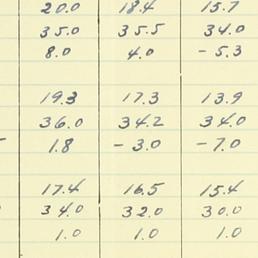 20.0 18.4 15.7
35.0 35.5 34.0
8.0 4.0 - 5.3
19.3 17.3 13.9
36.0 34.2 34.0
1.8 - 3.0 - 7.0
17.4 16.5 15.4
34.0 32.0 30.0
1.0 1.0 1.0